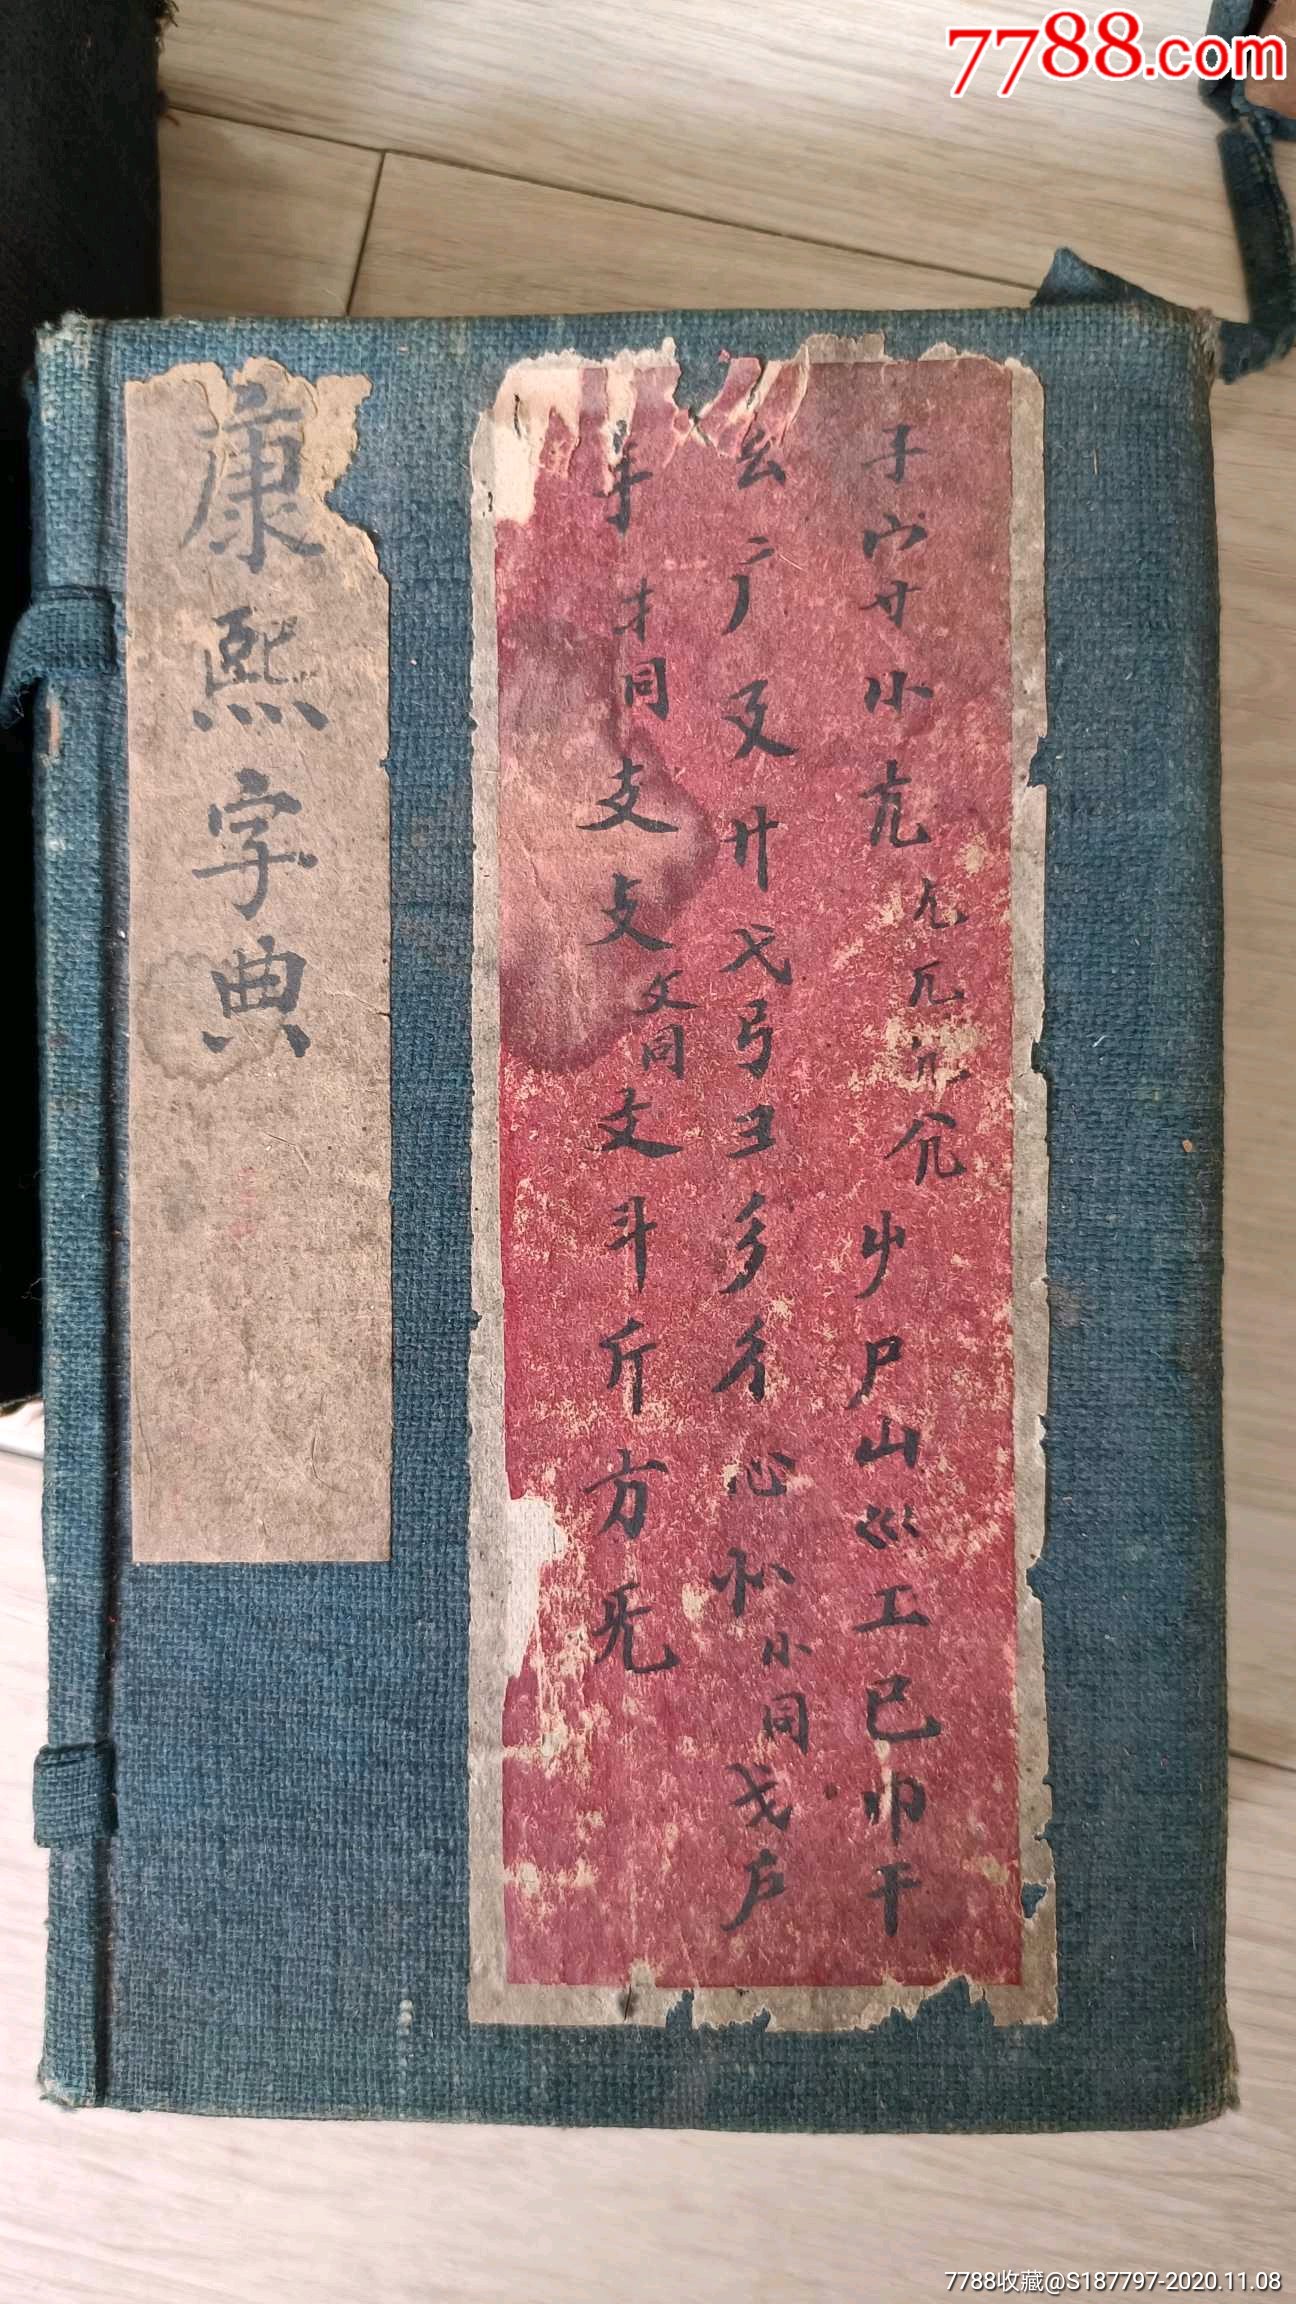 7788.com
子宀寸小尣尢兀尣尣屮尸山巛工己巾干
幺广廴廾弋弓彐彡彳心忄小同戈戶
手扌同支攴攵同文斗斤方无
康熙字典
7788收藏@S187797-2020.11.08